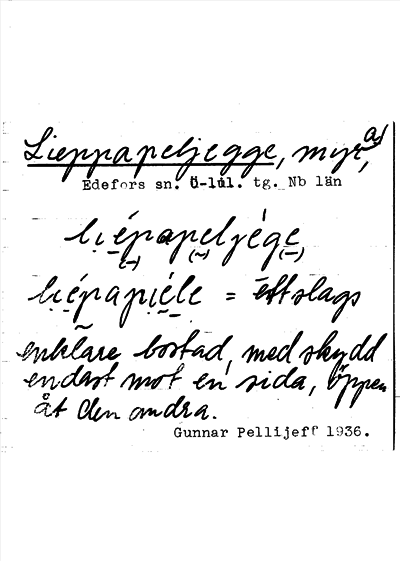 Lieppapeljegge, myr, a/
Edefors sn. Ö-lul. tg. Nb län
li̯épapeljége
li̯épapi̯éle = ett slags
enklare bostad, med skydd
endast mot en sida, öppen
åt den andra.
Gunnar Pellijeff 1936.